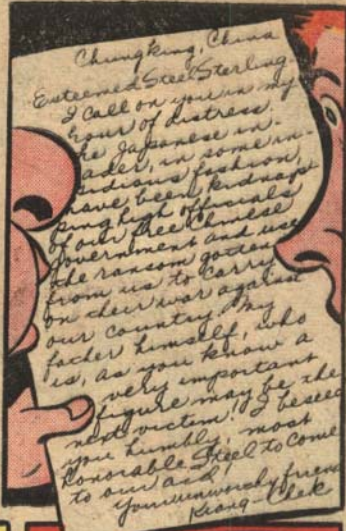 Chungking, China
Esteemed Steel Sterling
I call on you in my
hour of distress.
he Japanese in-
ader, in some in-
sidious fashion,
have been kidnap
ping high officials
of our free Chinese
government and use
the ransom gotten
from us to carry
on their war against
our country. My
father himself, who
is, as you know a
very important
figure may be the
next victim! I beseec
you humbly, most
honorable Steel to come
to our aid!
Your unworthy friend
Kiang-Chek